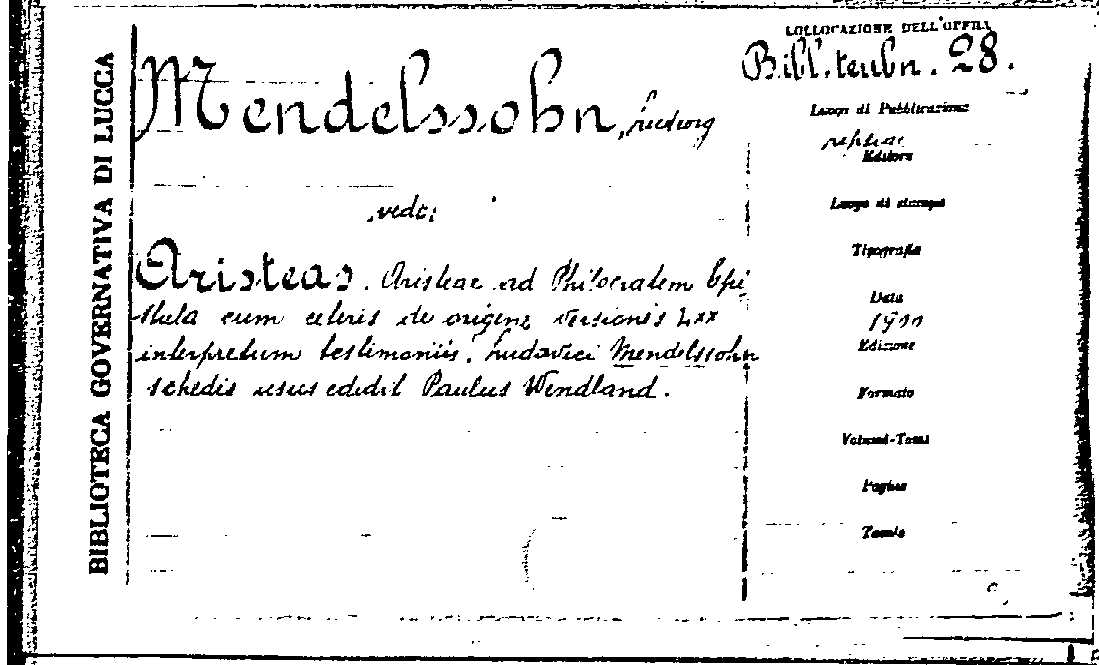 BIBLIOTECA GOVERNATIVA DI LUCCA
Mendelssohn, Ludwig
vedi:
Aristeas. Aristeae ad Philocratem Epi
stula cum ceteris de origine versionis LXX
interpretum testimoniis. Ludovici Mendelssohn
schedis usus edidit Paulus Wendland.
COLLOCAZIONE DELL'OPERA
Bibl. teubn. 28.
Luogo di Pubblicazione
Lipsiae
Editore
Luogo di stampa
Tipografia
Data
1900
Edizione
Formato
Volumi-Tomi
Pagine
Tavole